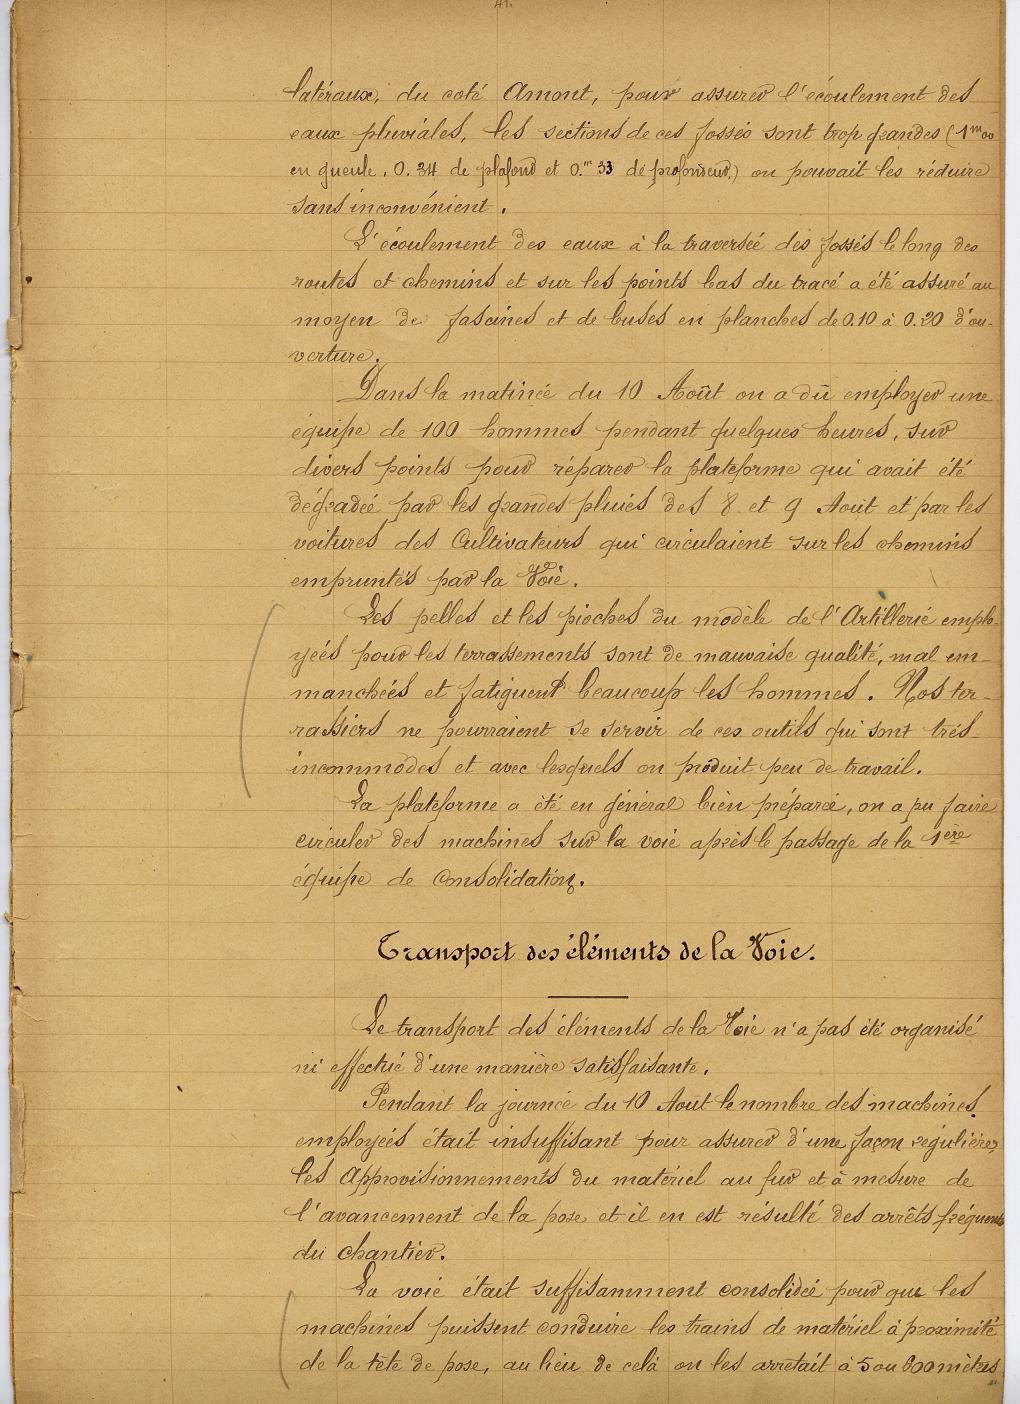 41.
latéraux, du coté Amont, pour assurer l'écoulement des
eaux pluviales, les sections de ces fossés sont trop grandes (1m00
en gueule, 0.34 de plafond et 0.m33 de profondeur,) on pouvait les réduire
sans inconvénient.
L'écoulement des eaux à la traversée des fossés le long des
routes et chemins et sur les points bas du tracé a été assuré au
moyen de fascines et de buses en planches de 0.10 à 0.20 d'ou-
verture.
Dans la matinée du 10 Août on a dû employer une
équipe de 100 hommes pendant quelques heures, sur
divers points pour réparer la plateforme qui avait été
dégradée par les grandes pluies des 8 et 9 Aout et par les
voitures des Cultivateurs qui circulaient sur les chemins
empruntés par la Voie.
Les pelles et les pioches du modèle de l'Artillerie emplo-
yées pour les terrassements sont de mauvaise qualité, mal em-
manchées et fatiguent beaucoup les hommes. Nos ter-
rassiers ne pourraient se servir de ces outils qui sont très
incommodes et avec lesquels on produit peu de travail.
La plateforme a été en général bien préparée, on a pu faire
circuler des machines sur la voie après le passage de la 1ère
équipe de Consolidation.
Transport des éléments de la Voie.
Le transport des éléments de la Voie n'a pas été organisé
ni effectué d'une manière satisfaisante.
Pendant la journée du 10 Aout le nombre des machines
employées était insuffisant pour assurer d'une façon régulière,
les Approvisionnements du matériel au fur et à mesure de
l'avancement de la pose et il en est résulté des arrêts fréquents
du chantier.
La voie était suffisamment consolidée pour que les
machines puissent conduire les trains de matériel à proximité
de la tête de pose, au lieu de celà on les arrêtait à 5 ou 600 mètres